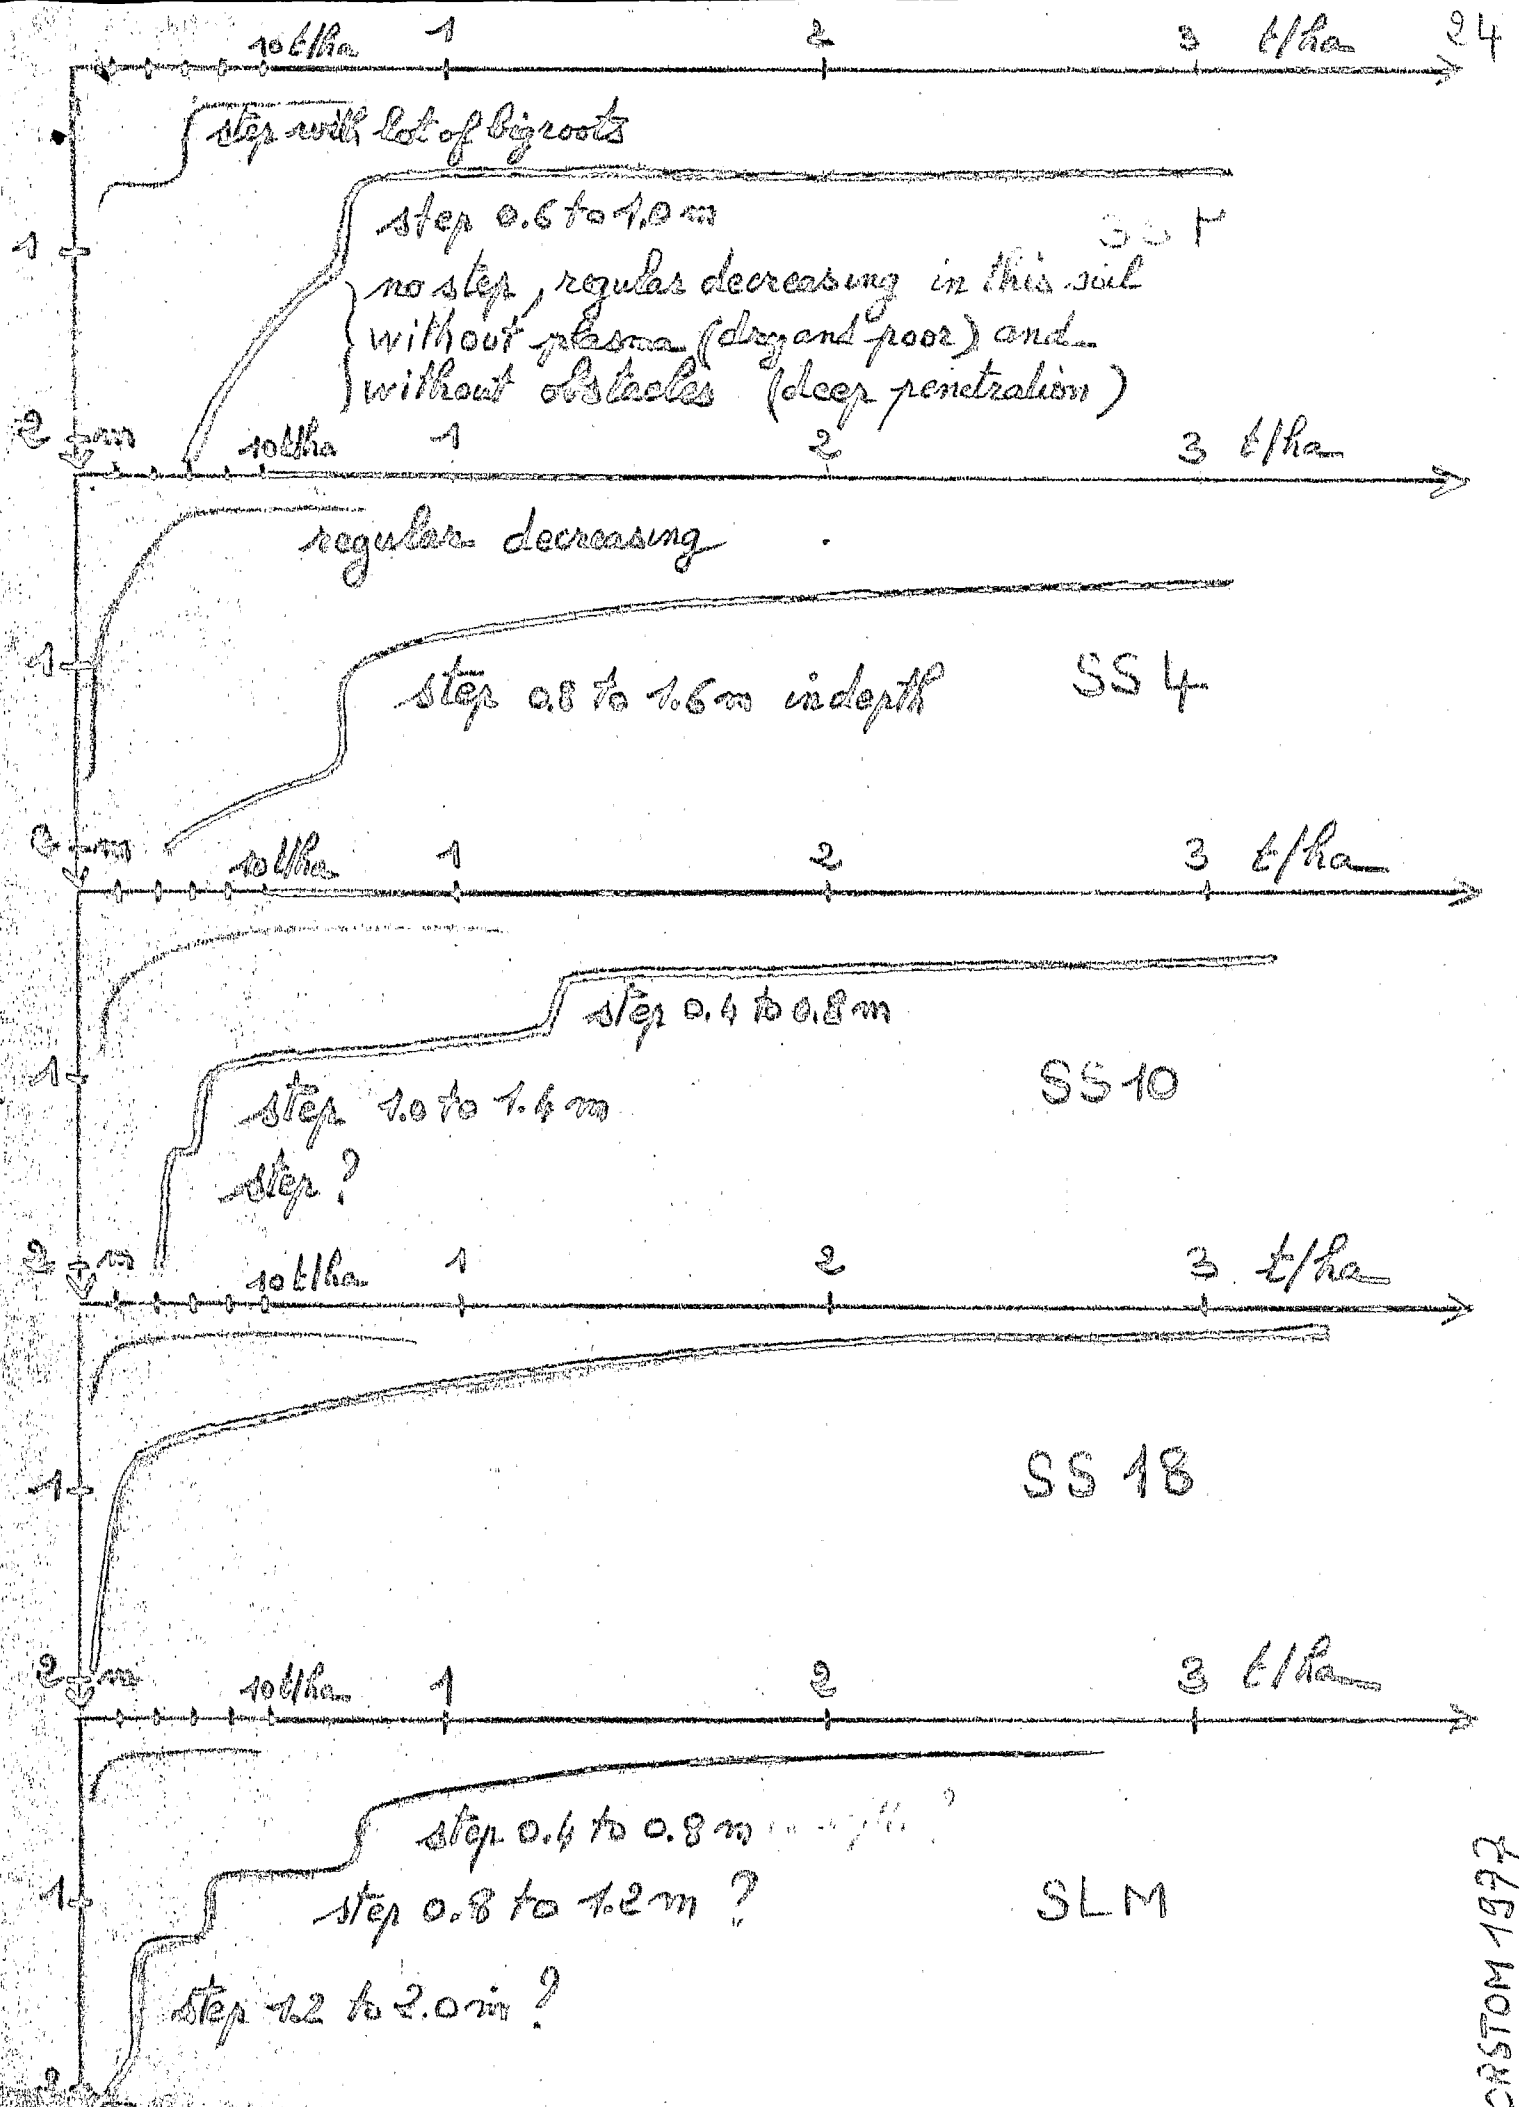 10 t/ha 1 2 3 t/ha 24
step with lot of big roots
step 0.6 to 1.0 m
1
no step, regular decreasing in this soil
without plasma (dry and poor) and
without obstacles (deep penetration)
2 m 10 t/ha 1 2 3 t/ha
regular decreasing
1 step 0.8 to 1.6 m in depth SS 4
m 10 t/ha 1 2 3 t/ha
step 0.4 to 0.8 m
1 SS 10
step 1.0 to 1.4 m
step ?
2 m 10 t/ha 1 2 3 t/ha
1 SS 18
2 m 10 t/ha 1 2 3 t/ha
step 0.4 to 0.8 m
1 step 0.8 to 1.2 m ? SLM
step 1.2 to 2.0 m ?
2
ORSTOM 1977